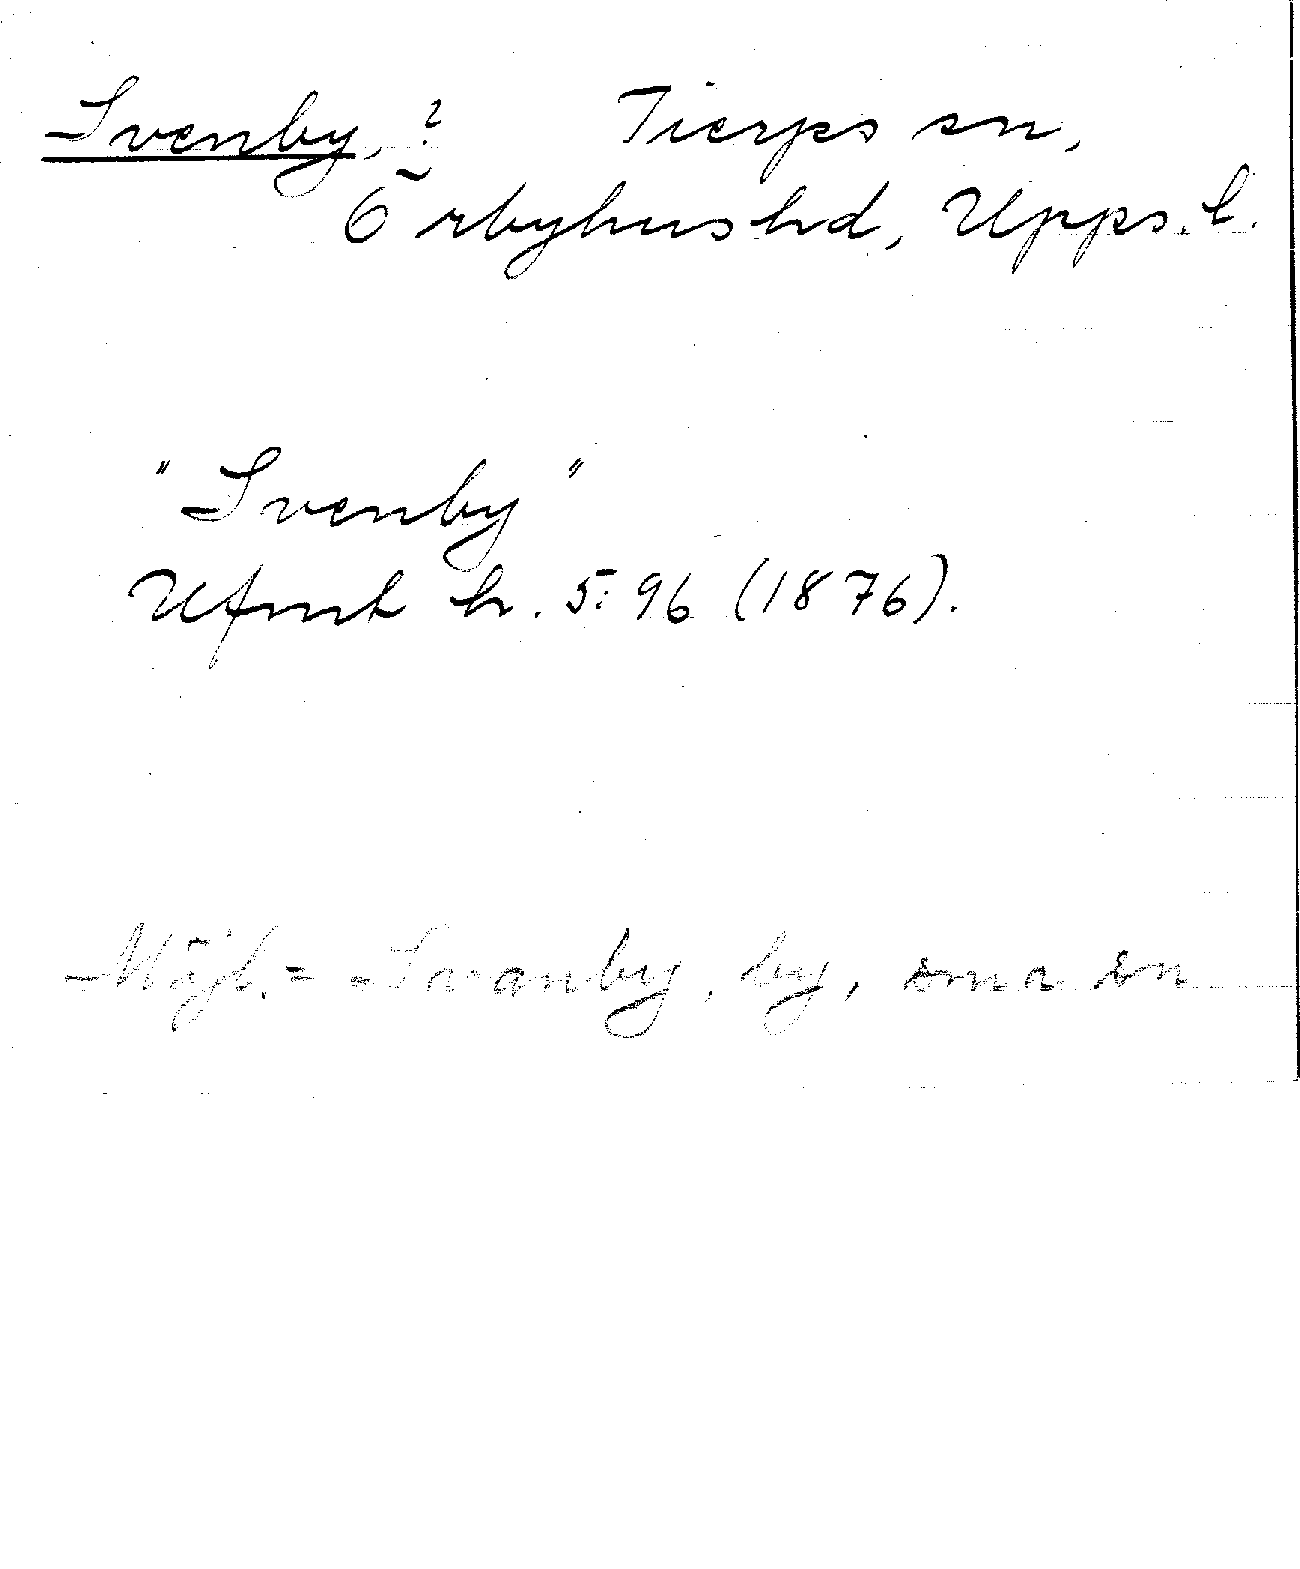 Svenby, ? Tierps sn,
Örbyhus hd, Upps. l.
"Svenby"
Ufmt h. 5:96 (1876).
Möjl. = Svanby, by, sma sn